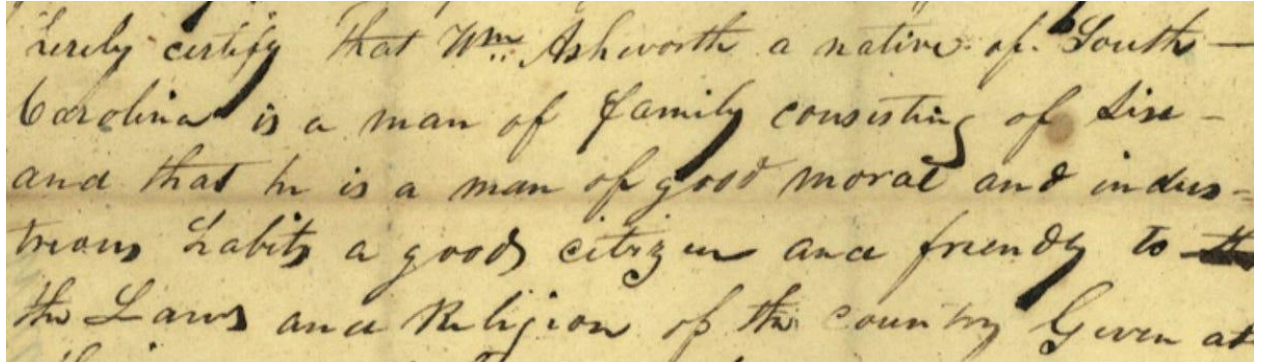 hereby certify that Wm. Ashworth a native of South —
Carolina is a man of family consisting of Six -
and that he is a man of good moral and indus=
trious habits a good citizen and friendly to the
the Laws and Religion of the country Given at